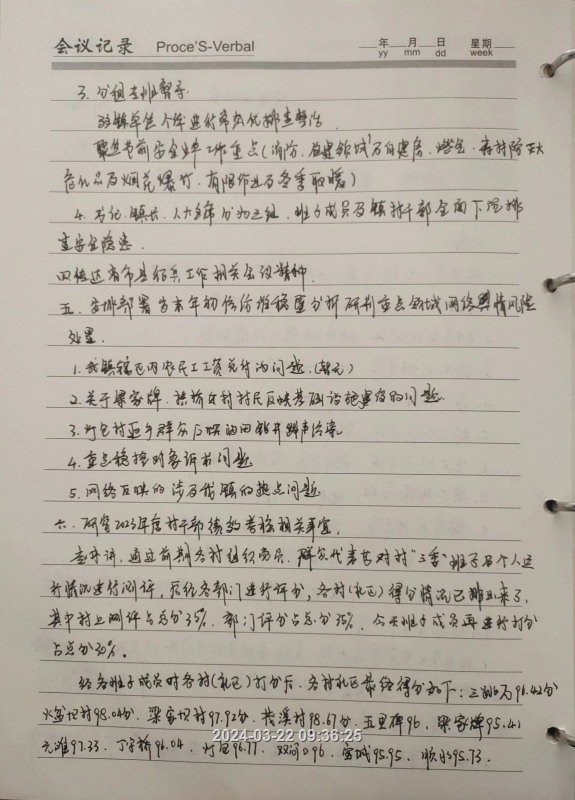 会议记录 Proce'S-Verbal 年 月 日 星期
yy mm dd week
3. 分组
对镇单位个体进行常态化排查整治
聚焦当前安全生产工作重点(消防、在建领域、自建房、燃气、森林防灭火
危化品及烟花爆竹、有限作业及冬季取暖)
4. 书记、镇长、人大主席分为三组,班子成员及镇村干部全面下沉排
查安全隐患.
四、传达省市县信兵工作相关会议精神.
五、安排部署当末年初信访维稳分析研判重点领域网络舆情风险
处置.
1. 我镇辖区内农民工工资兑付的问题.
2. 关于梁家牌、村民反映基础设施建设的问题.
3. 灯包村返乡群众反映的噪声污染
4. 重点稳控对象诉求问题
5. 网络反映的涉及我镇的热点问题
六、研究2023年度村干部绩效考核相关事宜,
通过前期各村组织党员、群众代表等对村"三委"班子及个人运
行情况进行测评,后经各部门进行评分,各村(社区)得分情况已排出来了,
其中村上测评占总分35%,部门评分占总分35%,今天班子成员再进行打分
占总分30%。
经各班子成员对各村(社区)打分后,各村社区最终得分如下:96.42分
村98.04分,梁家坝村97.92分,溪村98.67分,五里碑96,梁家牌95.41
元滩97.33,丁字桥96.04,灯包96.77,双河口96,宫城95.95,顺95.73.
2024-03-22 09:36:25